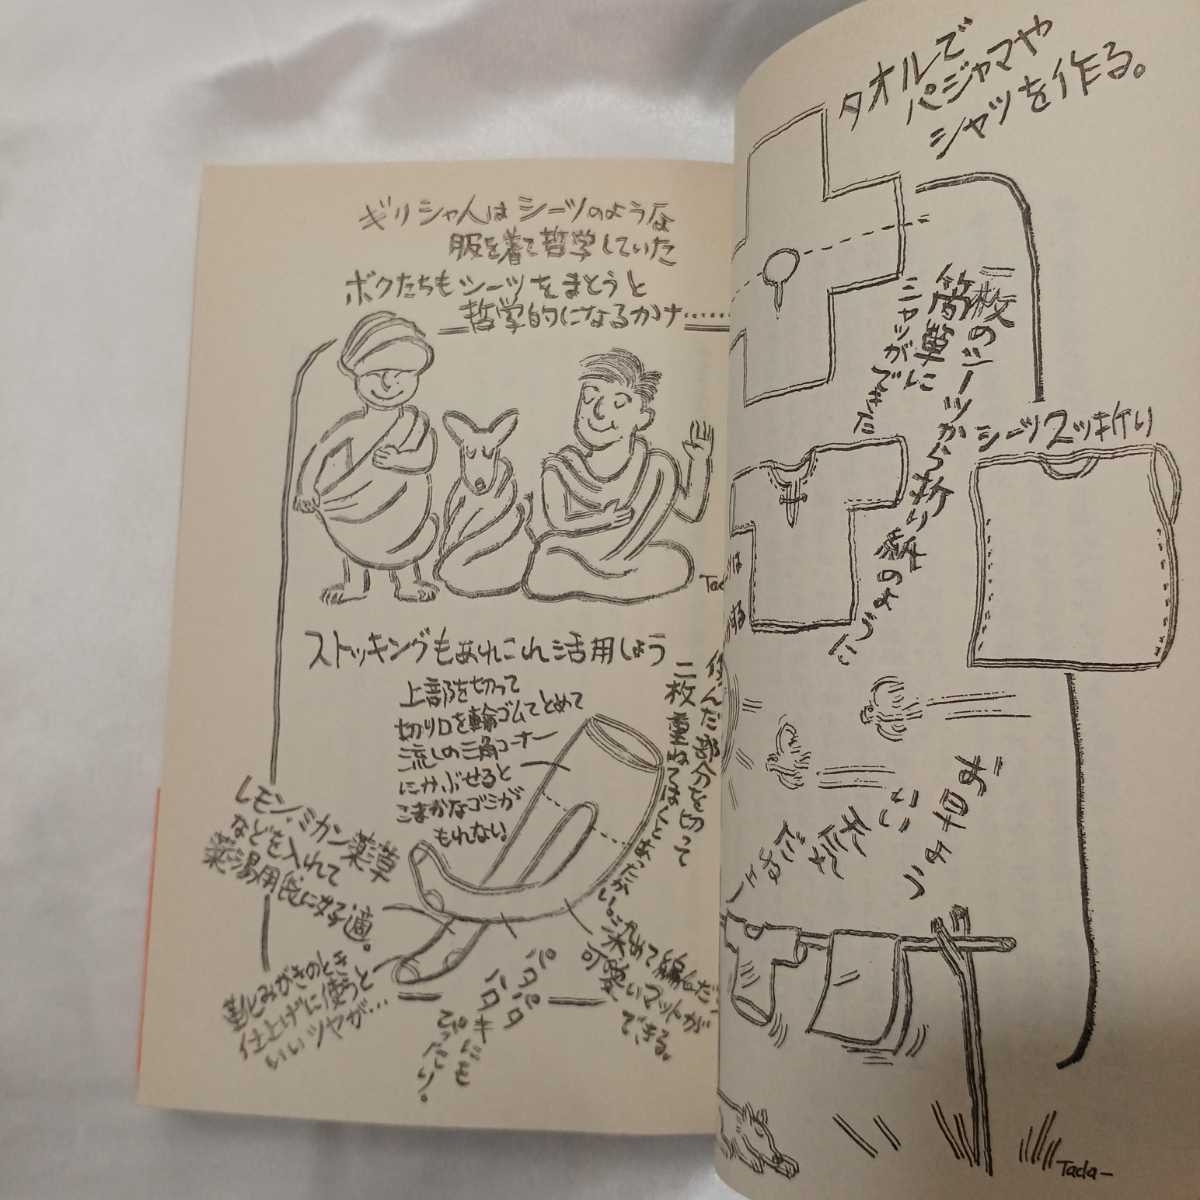 タオルで
パジャマや
シャツを作る。
一枚のシーツから折り紙のように
簡単に
シャツができた
シーツ二ッ折り
お早よう
いい
天気
だね
Tada
ギリシャ人はシーツのような
服を着て哲学していた
ボクたちもシーツをまとうと
哲学的になるかナ……
ストッキングもあれこれ活用しよう
上部を切って
切り口を輪ゴムでとめて
流しの三角コーナー
にかぶせると
こまかなゴミが
もれない。
レモン、ミカン薬草
などを入れて
薬湯用袋に好適。
靴みがきのとき
仕上げに使うと
いいツヤが…
パタパタ
ハタキにも
ぴったり。
二枚重ねてはくとあったかい。
染めて編んだ
可愛いマットが
できる。